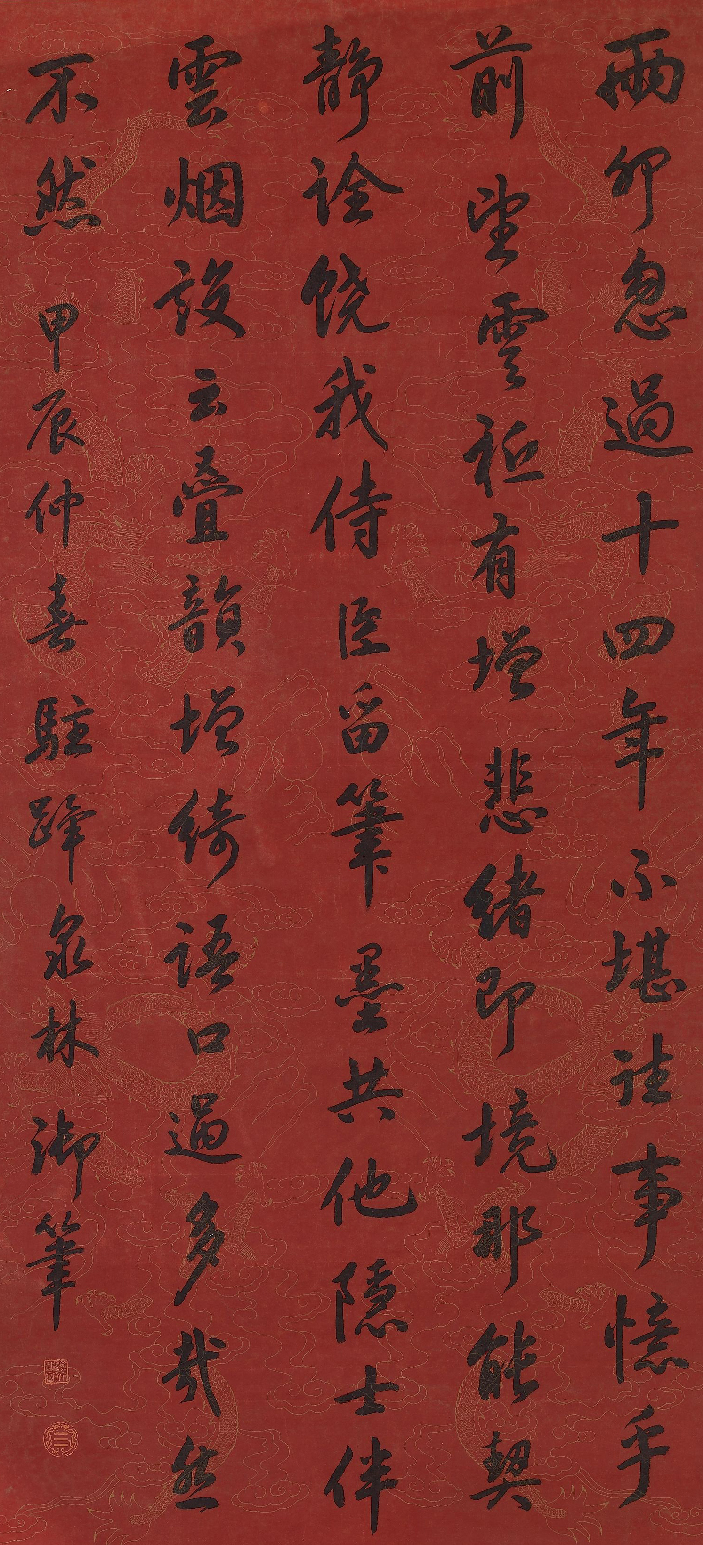 两卯忽過十四年不堪往事憶乎
前望雲祗有增悲緒即境那能契
静詮饒我侍臣留筆墨共他隱士伴
雲烟設云疊韻增綺語口過多哉然
不然 甲辰仲春駐蹕泉林御筆